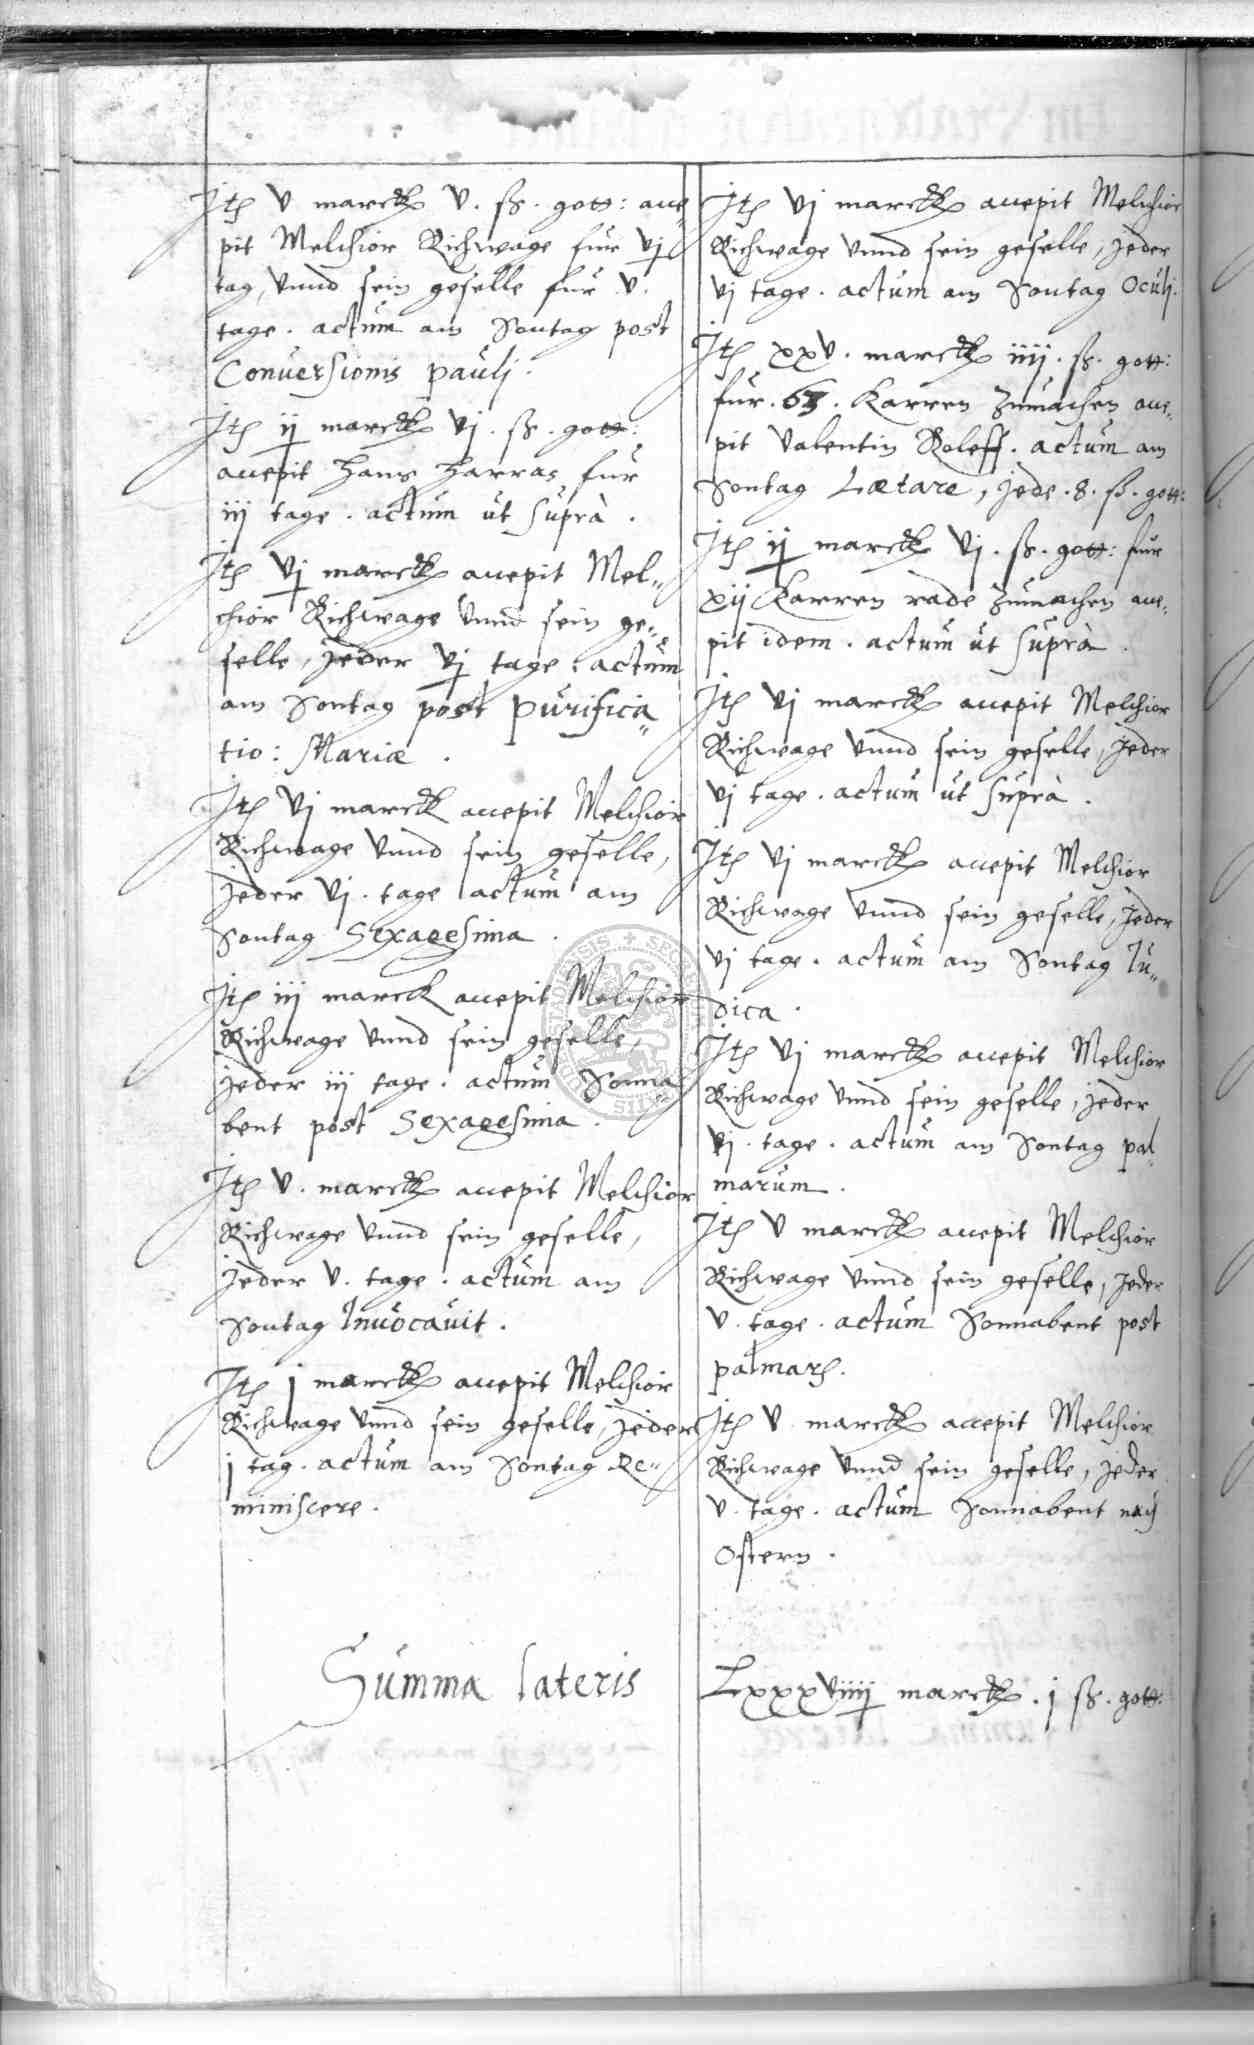 Itē v marck v. ß. gott: acce=
pit Melchior Richwage fur vj
tag, vnnd sein geselle fur v.
tage. actum am Sontag post
Conuersionis pauli.
Itē ij marck vj. ß. gott:
accepit Hans Harras fur
iij tage. actum ut suprà.
Itē vj marck accepit Mel=
chior Richwage vnnd sein ge=
selle, jeder vj tage. actum
am Sontag post purifica=
tio: Mariæ.
Itē vj marck accepit Melchior
Richwage vnnd sein geselle,
jeder vj. tage actum am
Sontag Sexagesima.
Itē iij marck accepit Melchior
Richwage vnnd sein geselle,
jeder iij tage. actum Sonna=
bent post Sexagesima.
Itē v. marck accepit Melchior
Richwage vnnd sein geselle,
jeder v. tage. actum am
Sontag Inuocauit.
Itē j marck accepit Melchior
Richwage vnnd sein geselle, jeder
j tag. actum am Sontag Re=
miniscere.
Itē vj marck accepit Melchior
Richwage vnnd sein geselle, jeder
vj tage. actum am Sontag Oculi.
Itē xxv. marck iiij. ß. gott:
fur. 63. Karren zumachen acce=
pit Valentin Roleff. actum am
Sontag Lætare, jede. 8. ß. gott:
Itē ij marck vj. ß. gott: fur
xij Karren rade zumachen acce=
pit idem. actum ut suprà.
Itē vj marck accepit Melchior
Richwage vnnd sein geselle, jeder
vj tage. actum ut suprà.
Itē vj marck accepit Melchior
Richwage vnnd sein geselle, jeder
vj tage. actum am Sontag Iu=
dica.
Itē vj marck accepit Melchior
Richwage vnnd sein geselle, jeder
vj. tage. actum am Sontag pal
marum.
Itē v marck accepit Melchior
Richwage vnnd sein geselle, jeder
v. tage. actum Sonnabent post
palmarū.
Itē v marck accepit Melchior
Richwage vnnd sein geselle, jeder
v. tage. actum Sonnabent nach
Ostern.
Summa lateris
Lxxxviiij marck. j ß. gott: